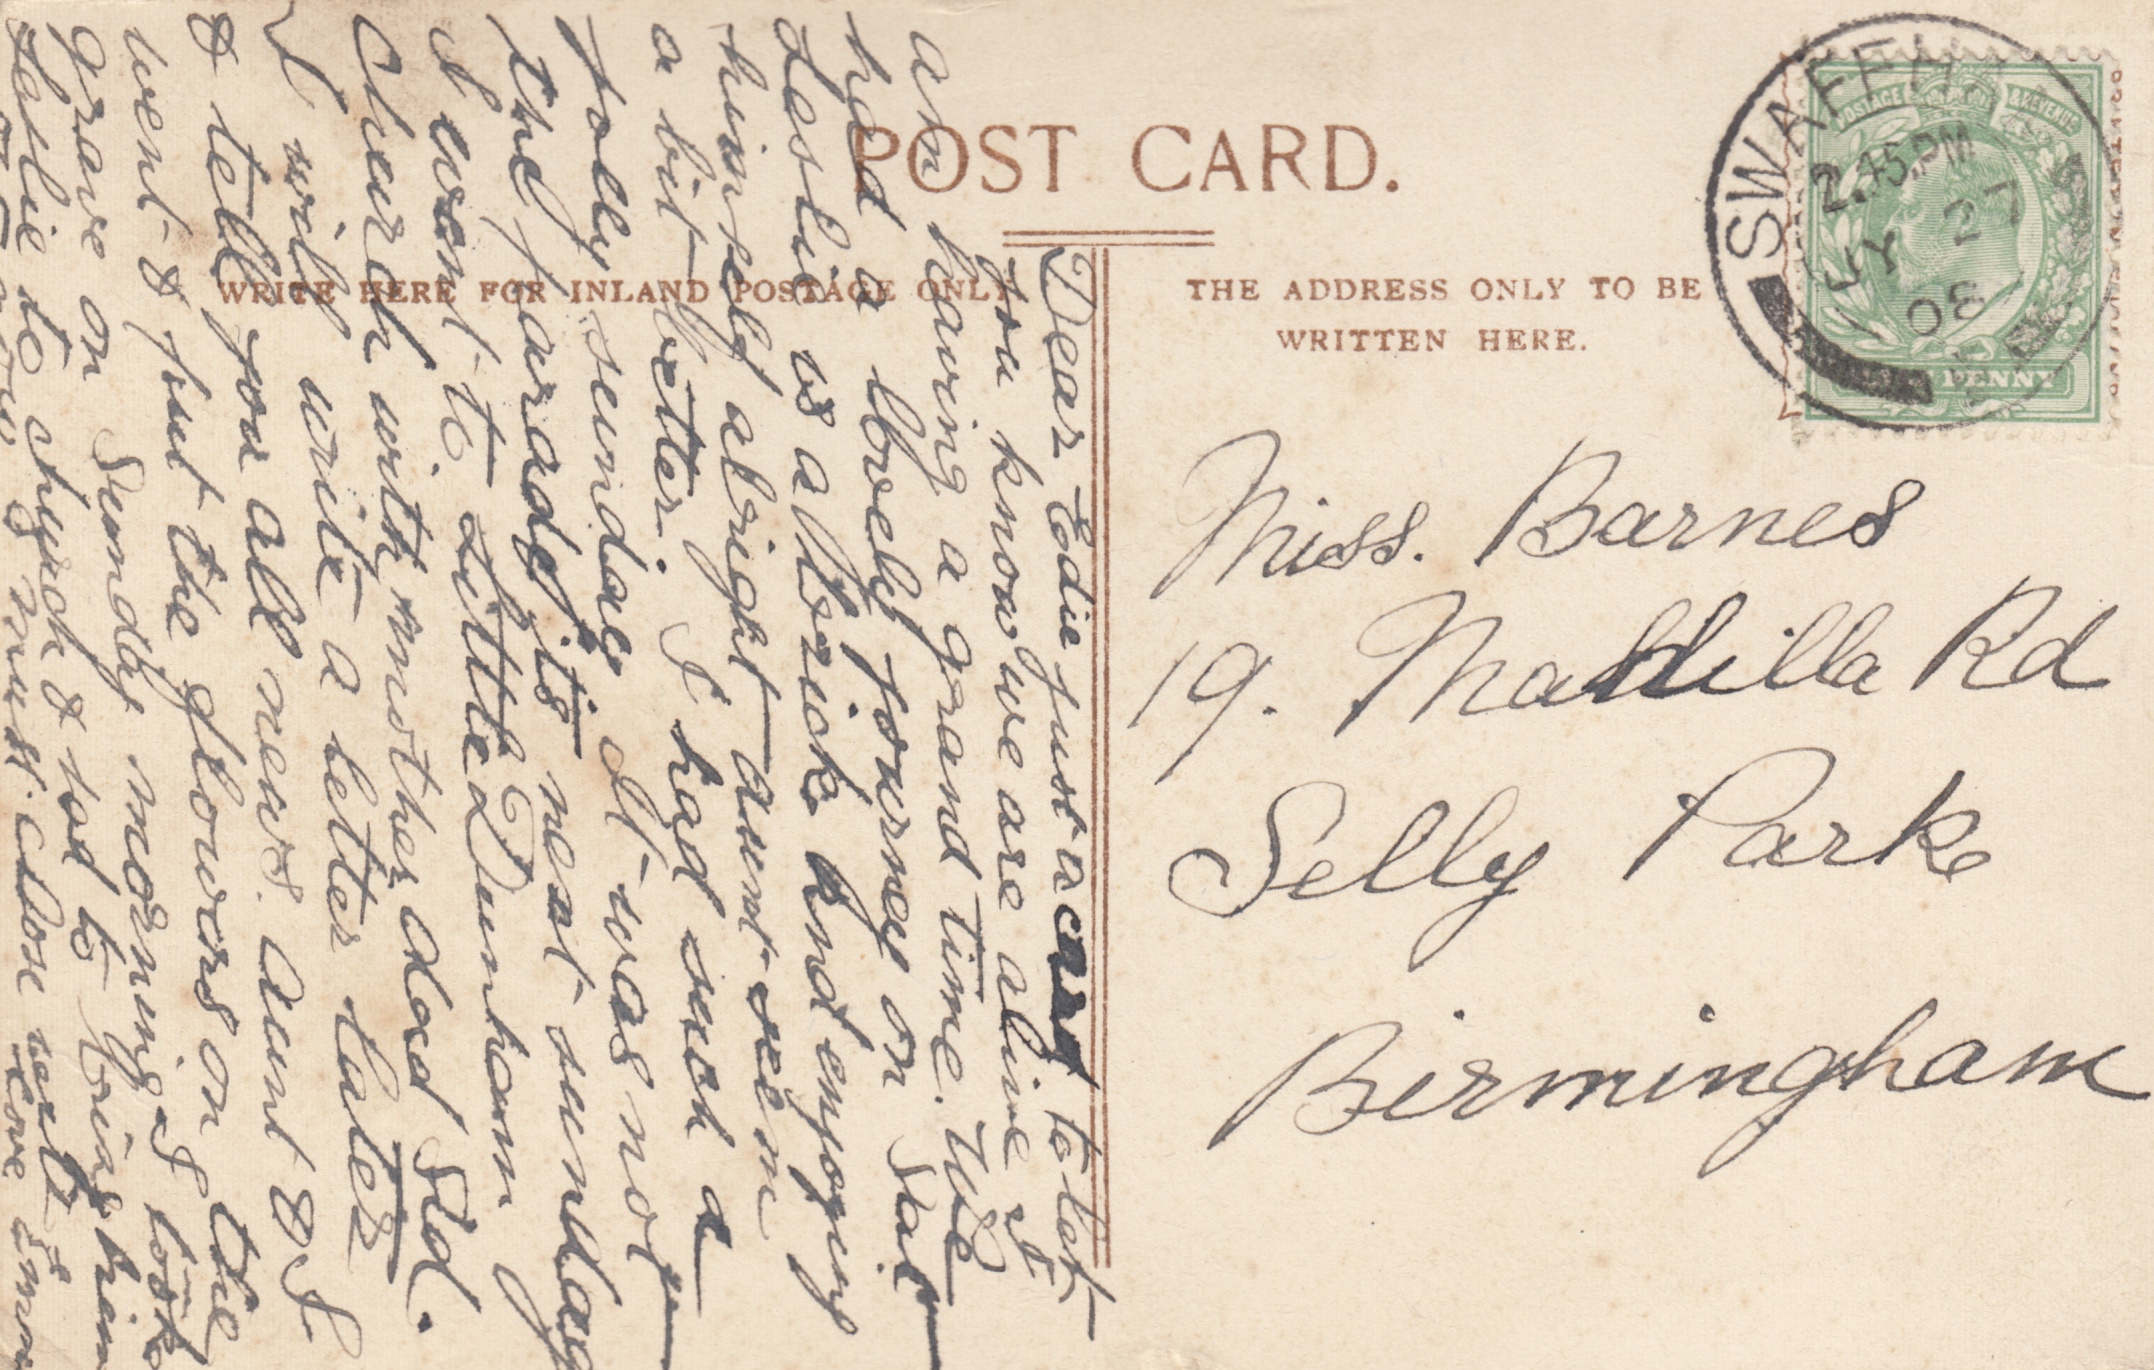 POST CARD.
WRITE HERE FOR INLAND POSTAGE ONLY
THE ADDRESS ONLY TO BE
WRITTEN HERE.
SWAFFHA
2.45.PM
JY 27
08
POSTAGE & REVENUE
PENNY
Miss. Barnes
19. Rd
Selly Park
Birmingham
Dear Edie just a card to let
you know we are alive &
am having a grand time. We
had a lovely journey on Sat
Leslie is a brick and enjoying
himself alright aunt seem
a bit better. I had such a
folly sunday It was not
the parade its next sunday
I went to Little Dunham
Church with mother dad Sid.
I will write a letter later
& tell you all news. Aunt & I
went & put the flowers on the
grave on Sunday morning I took
Leslie to church & had to bring him
must close love